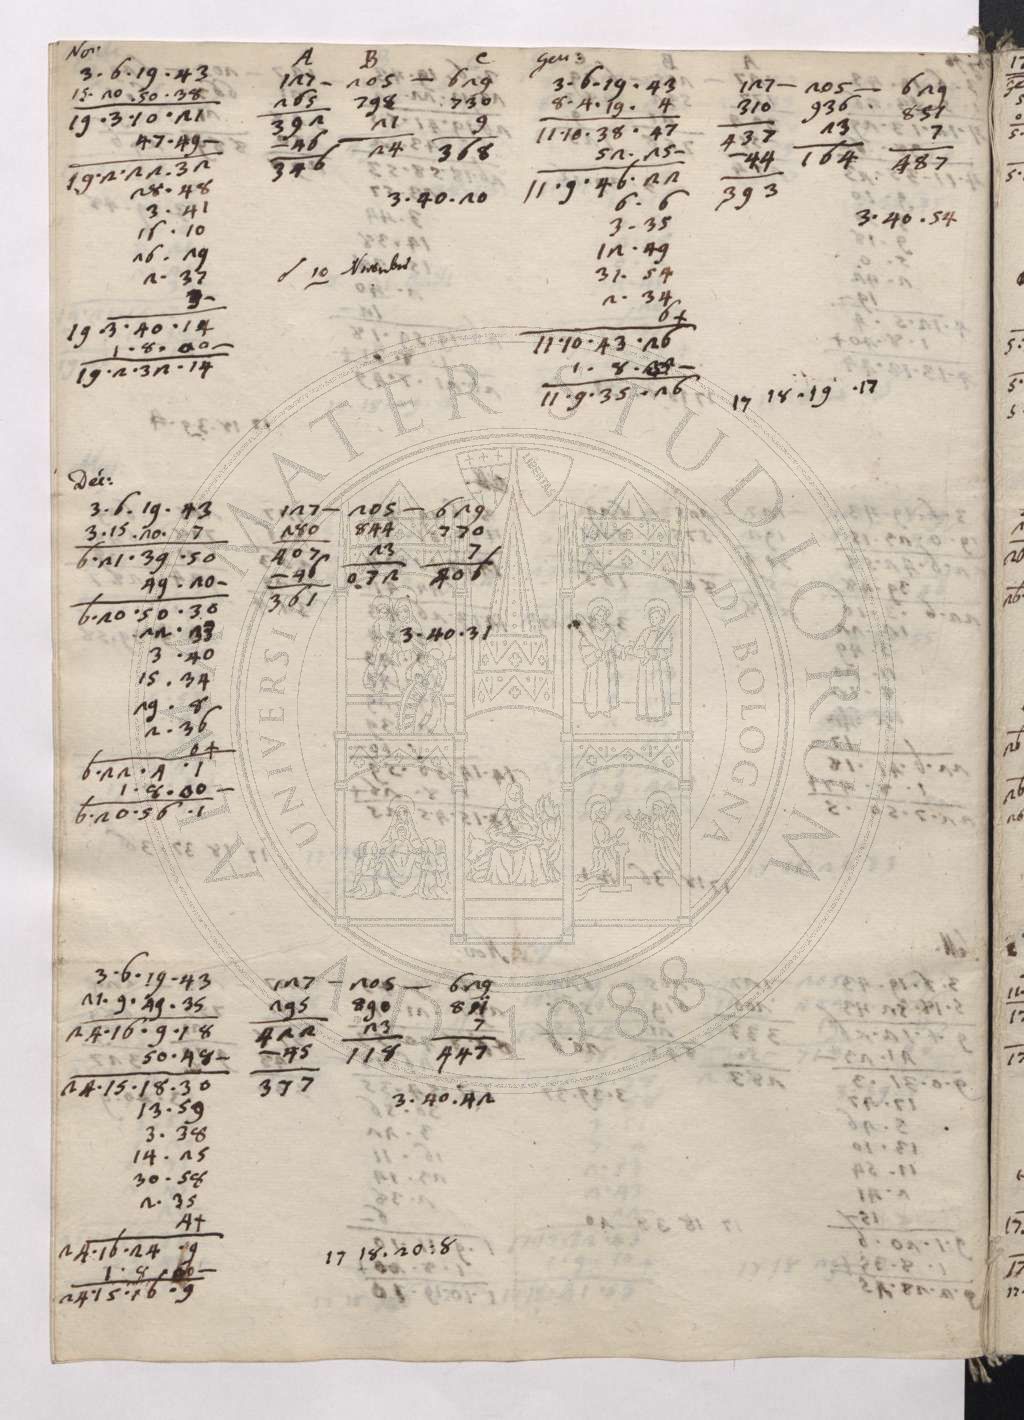 Nov:
3.6.19.43
15.20.50.38
19.3.10.21
47.49-
19.2.22.32
28.48
3.41
16.10
26.29
2.37
3-
19.3.40.14
1.8.00-
19.2.32.14
A B C
127 - 205 - 629
265 798 730
392 21 9
-46 24 368
346
3.40.20
10 Novembri
Gen:
3.6.19.43
8.4.19.4
11.10.38.47
52.25-
11.9.46.22
6.6
3.35
12.49
31.54
2.34
6+
11.10.43.26
1.8.00-
11.9.35.26
127 - 205 - 629
310 936 851
437 23 7
-44 164 487
393
3.40.54
17 18.19.17
Dec:
3.6.19.43
3.15.20.7
6.21.39.50
49.20-
6.20.50.30
22.33
3.40
15.34
29.8
2.36
0+
6.22.4.1
1.8.00-
6.20.56.1
127 - 205 - 629
280 844 770
407 23 7
-46 072 406
361
3.40.31
3.6.19.43
21.9.49.35
24.16.9.18
50.48-
24.15.18.30
13.59
3.38
14.25
30.58
2.35
4+
24.16.24.9
1.8.00-
24.15.16.9
127 - 205 - 629
295 890 811
422 23 7
-45 118 447
377
3.40.42
17 18.20.8
ALMA MATER STUDIORUM
UNIVERSITÀ DI BOLOGNA
A.D. 1088
LIBERTAS